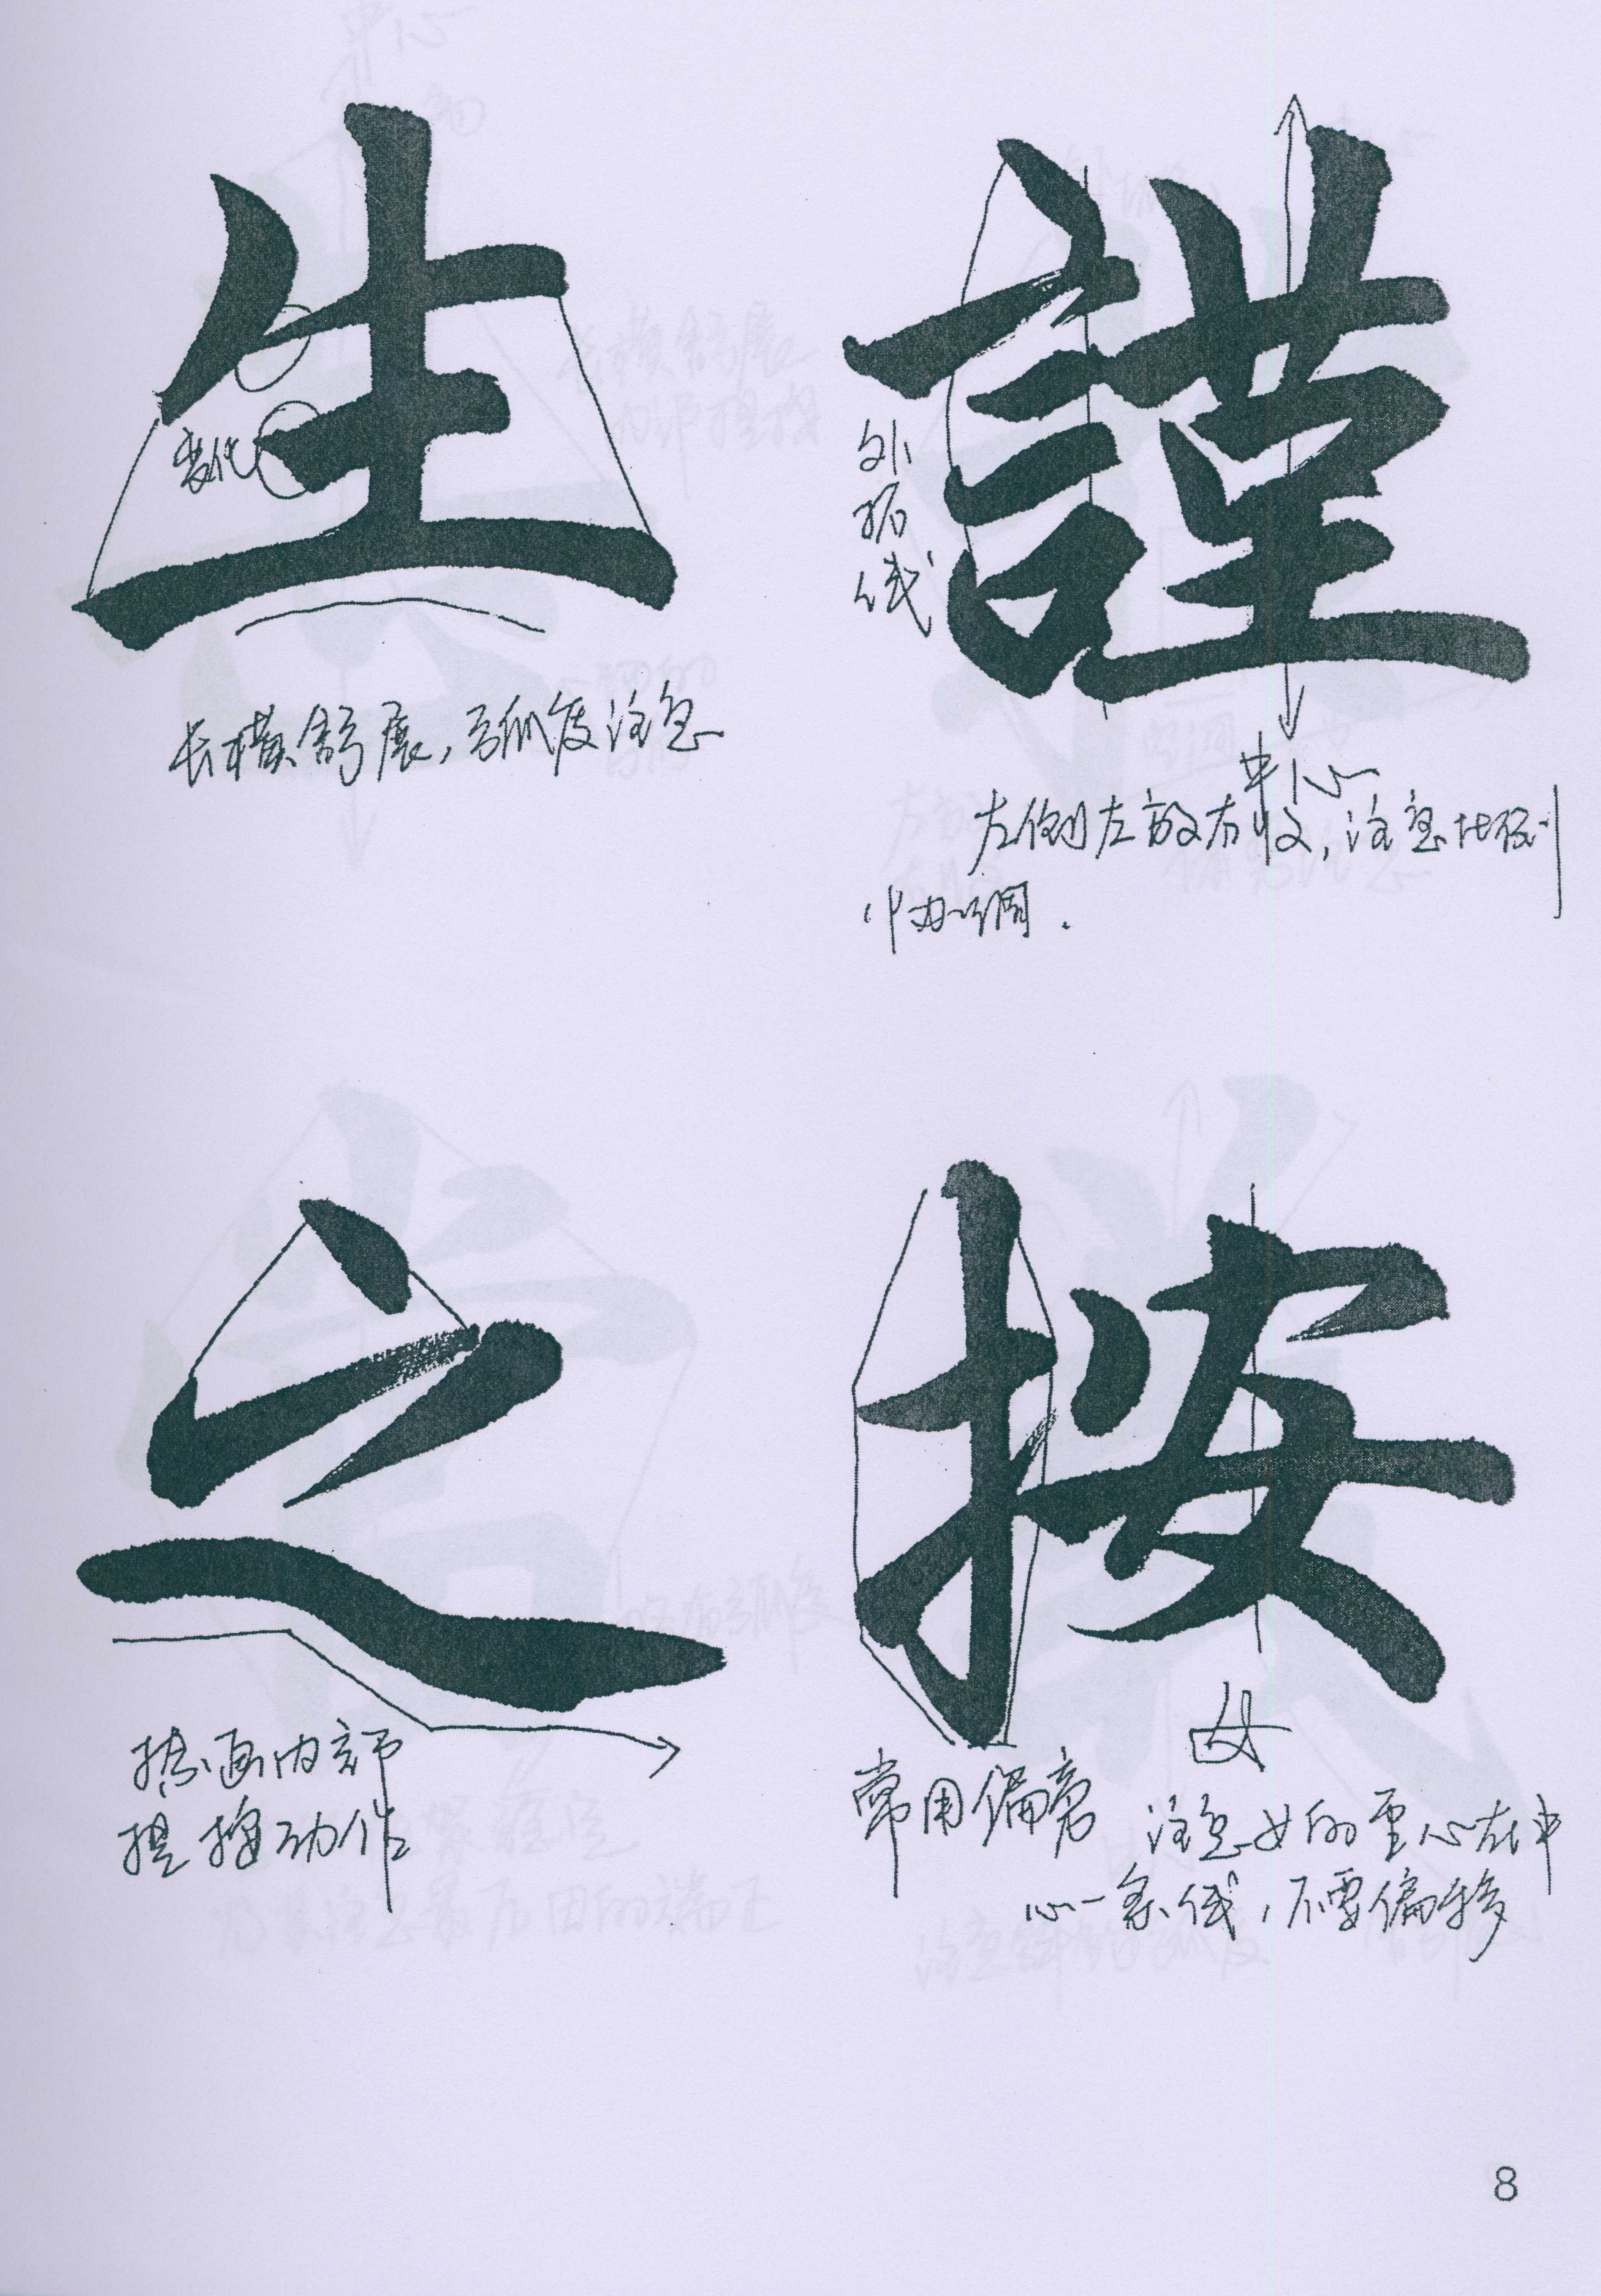 生
变化
长横舒展，弧度注意
謹
外拓线
中心
左侧左放右收，注意比例
协调.
之
捺画内部
提按动作
按
女
常用偏旁
注意女的重心在中
心一条线，不要偏移
8